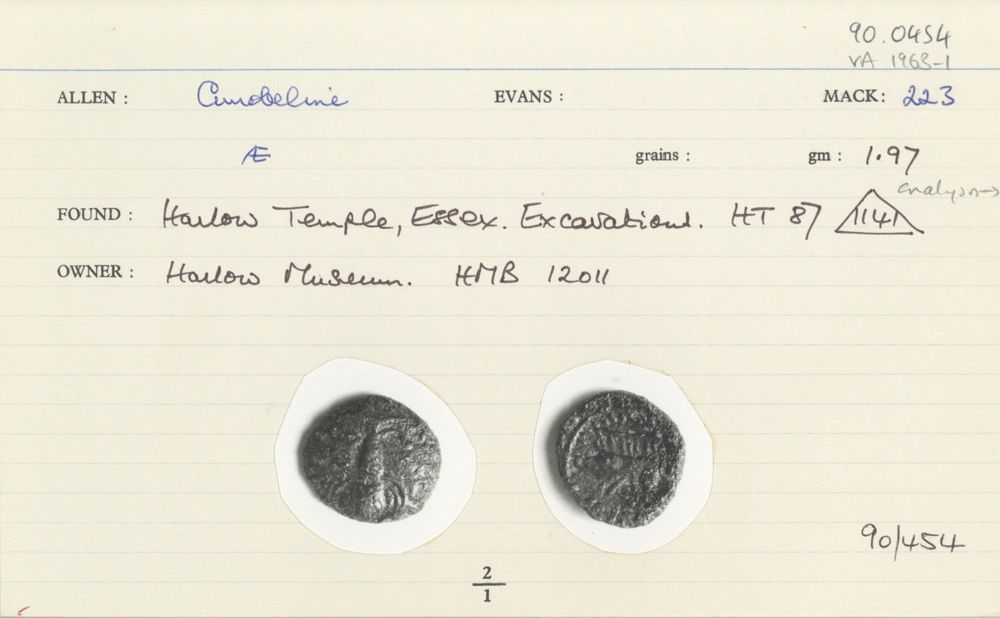 90.0454
VA 1963-1
ALLEN : Cunobeline EVANS : MACK: 223
Æ grains : gm : 1.97
analysis→
FOUND : Harlow Temple, Essex. Excavations. HT 87 1141
OWNER : Harlow Museum. HMB 12011
90/454
2
1